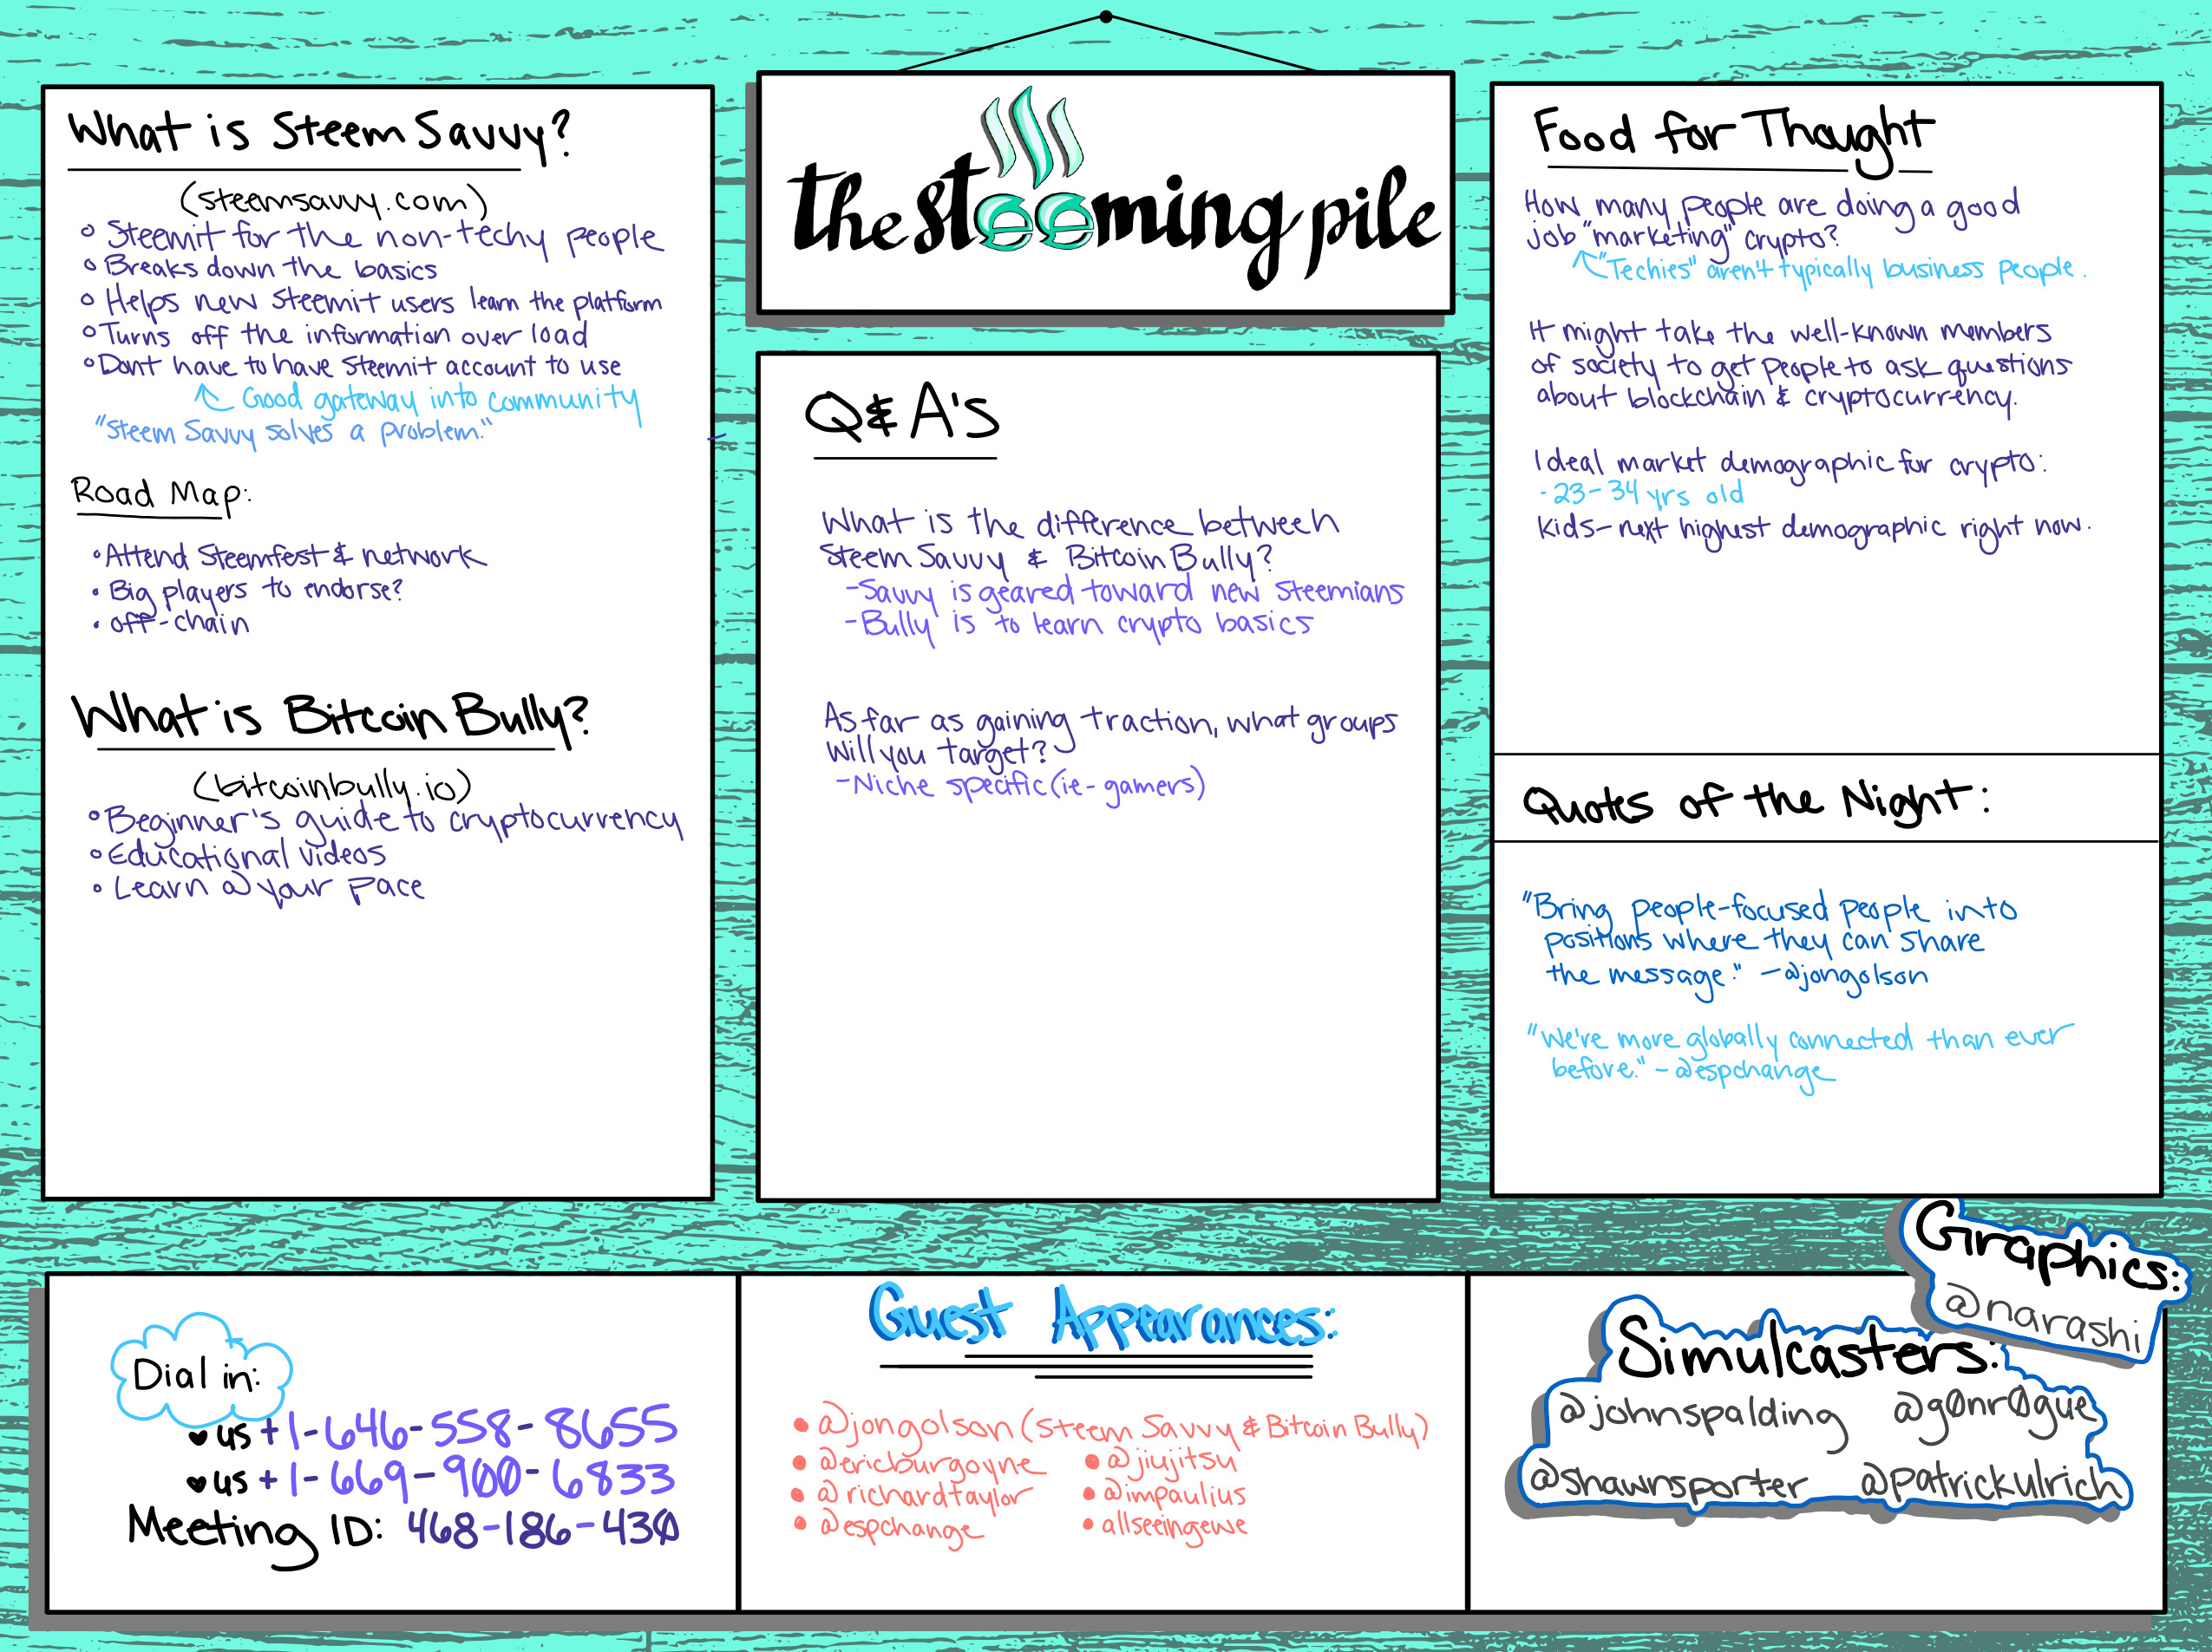 the steeming pile
What is Steem Savvy?
(steemsavvy.com)
Steemit for the non-techy people
Breaks down the basics
Helps new Steemit users learn the platform
Turns off the information over load
Dont have to have Steemit account to use
Good gateway into community
"Steem Savvy solves a problem."
Road Map:
Attend Steemfest & network
Big players to endorse?
off-chain
What is Bitcoin Bully?
(bitcoinbully.io)
Beginner's guide to cryptocurrency
Educational videos
Learn @ your pace
Q & A's
What is the difference between
Steem Savvy & Bitcoin Bully?
-Savvy is geared toward new Steemians
-Bully is to learn crypto basics
As far as gaining traction, what groups
will you target?
-Niche specific (ie- gamers)
Food for Thought
How many people are doing a good
job "marketing" crypto?
"Techies" aren't typically business people.
It might take the well-known members
of society to get people to ask questions
about blockchain & cryptocurrency.
Ideal market demographic for crypto:
-23-34 yrs old
Kids-next highest demographic right now.
Quotes of the Night:
"Bring people-focused people into
positions where they can share
the message." -@jongolson
"We're more globally connected than ever
before." - @espchange
Dial in:
US +1-646-558-8655
US +1-669-900-6833
Meeting ID: 468-186-430
Guest Appearances:
@jongolson (Steem Savvy & Bitcoin Bully)
@ericburgoyne @jiujitsu
@richardtaylor @impaulius
@espchange allseeingewe
Graphics:
@narashi
Simulcasters:
@johnspalding @g0nr0gue
@shawnsporter @patrickulrich